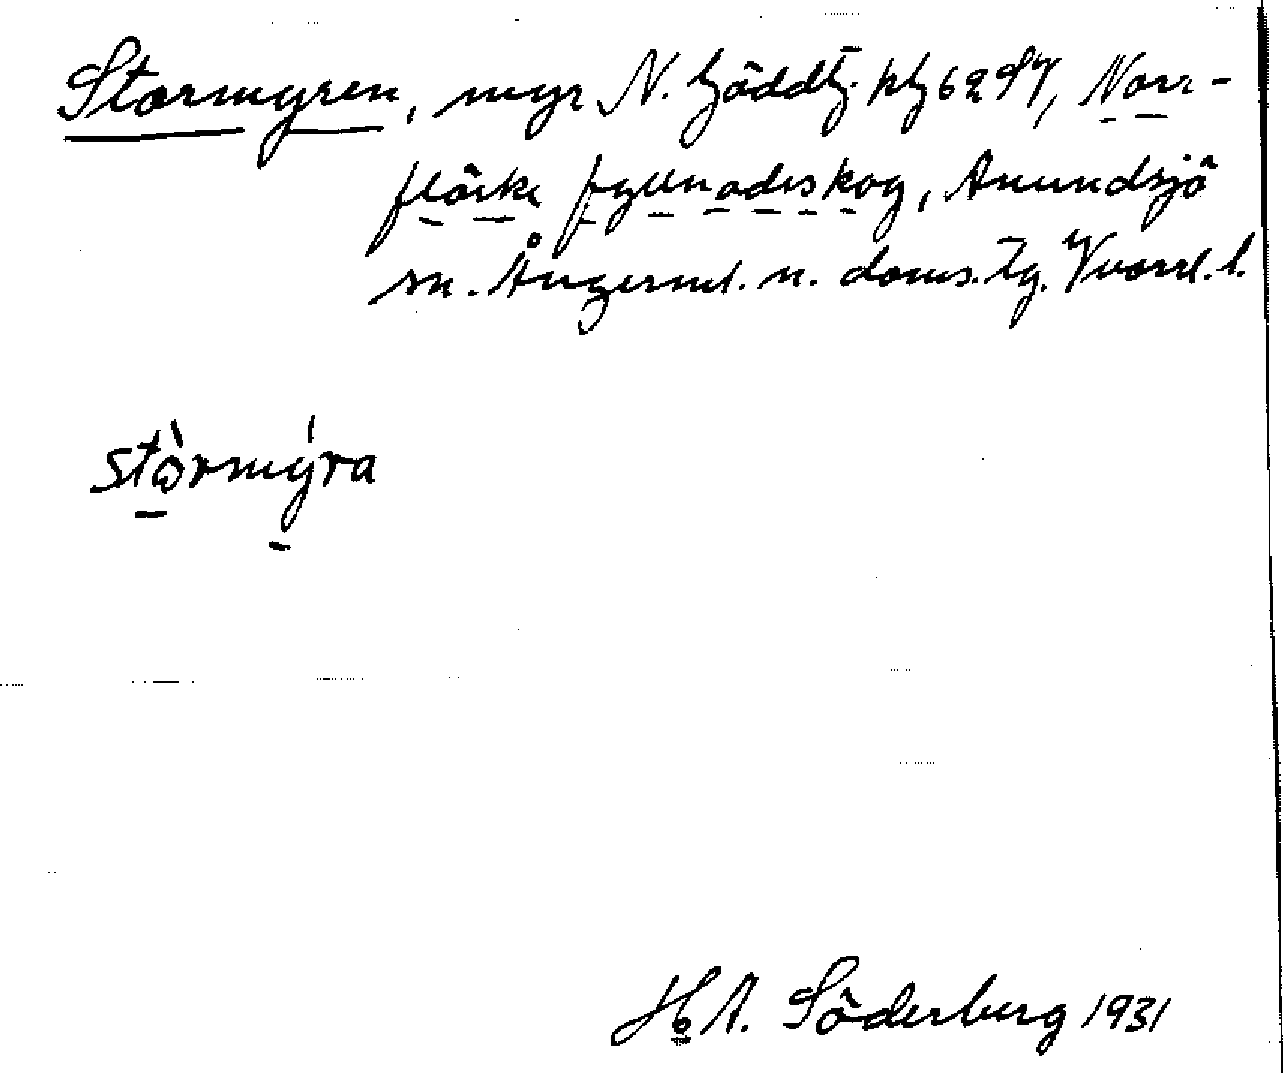 Stormyren, myr N. Gäddtj. htj 62 S7, Norr-
flärke fyllnadsskog, Anundsjö
sn. Ångerml. n. doms. tg. Vnorrl. l.
stòrmýra
H. A. Söderberg 1931